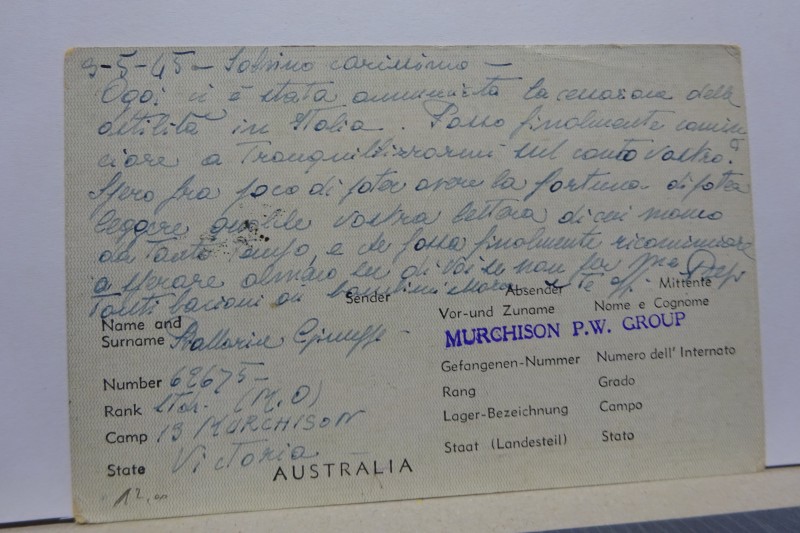 3-5-45 - Sobrino carissimo -
Oggi ci è stata annunciata la cessazione delle
ostilità in Italia. Posso finalmente comin
ciare a tranquillizzarmi sul conto vostro.
Spero fra poco di poter avere la fortuna di poter
leggere qualche vostra lettera di cui manco
da tanto tempo, e se possa finalmente ricominciare
a sperare almeno su di voi se non per me
Tanti bacioni ai bambini
Sender Absender Mittente
Name and Surname Vor-und Zuname Nome e Cognome
MURCHISON P.W. GROUP
Number 62675 - Gefangenen-Nummer Numero dell' Internato
Rank (M.O) Rang Grado
Camp 13 MURCHISON Lager-Bezeichnung Campo
State Victoria Staat (Landesteil) Stato
AUSTRALIA
12,00